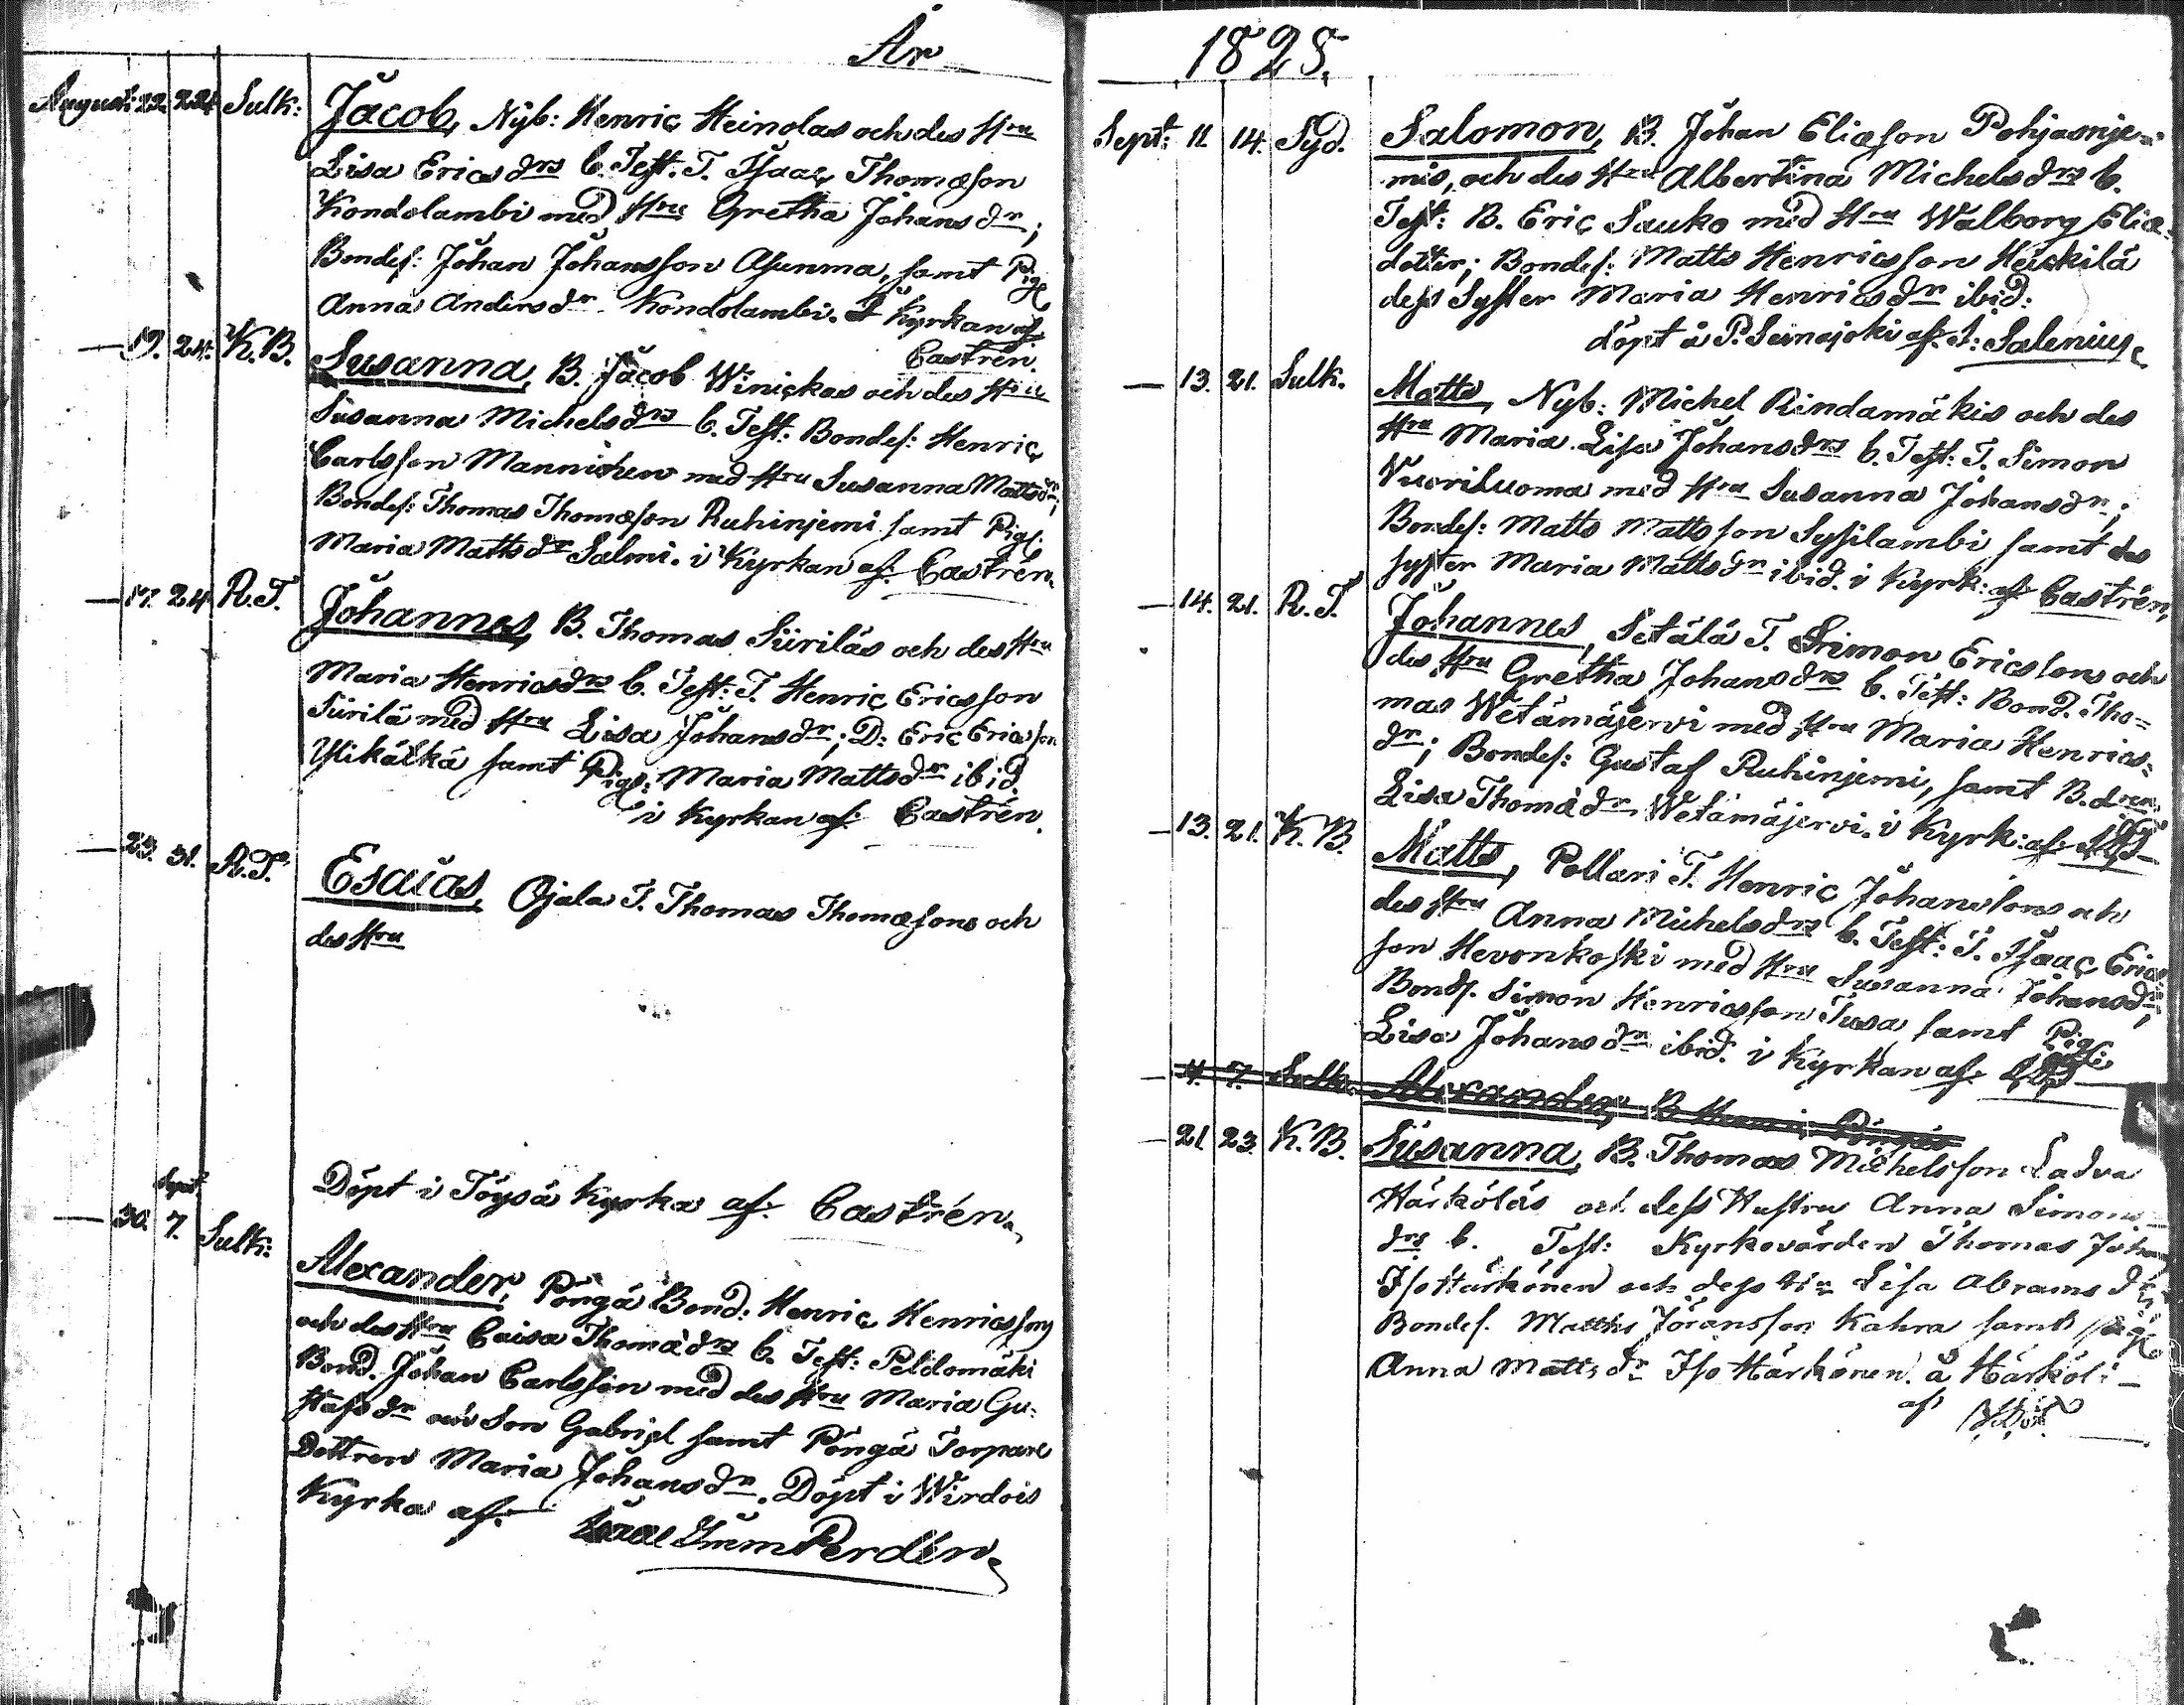 År
August: 22. 24. Sulk: Jacob, Nyb: Henric Heinolas och des Hru
Lisa Ericsdrs b. Test. T. Isaac Thomæson
Kondolambi med Hru Gretha Johansdr;
Bondes: Johan Johansson Asunma, samt Pig:
Anna Andersdr Kondolambi. I Kyrkan af
Castrén.
— 19. 24. K.B. Susanna, B. Jacob Winickas och des Hru
Susanna Michelsdrs b. Test: Bondes: Henric
Carlsson Mannichen med Hru Susanna Mattsdr;
Bondes: Thomas Thomæson Ruhinjemi samt Pigs:
Maria Mattsdr Salmi. i Kyrkan af: Castrén.
— 17. 24 R.T. Johannes, B. Thomas Siirilás och des Hru
Maria Henricsdrs b. Test: T. Henric Ericsson
Siirilä med Hru Lisa Johansdr; D: Eric Ericsson
Ylikätkä samt Pigs: Maria Mattsdr ibid.
i Kyrkan af: Castrén.
— 23. 31. R.T. Esaias, Ojala T. Thomas Thomæsons och
des Hru
Döpt i Töysä Kyrka af: Castrén.
Sept:
— 30. 7. Sulk: Alexander, Pöngä Bond: Henric Henricssons
och des Hru Caisa Thomædrs b. Test: Peldomäki
Bond. Johan Carlsson med des Hru Maria Gu-
stafsdr och Son Gabriel samt Pöngä Torpare
Dottren Maria Johansdr. Döpt i Wirdois
Kyrka af: Perdén.
1825.
Sept: 11. 14. Syd. Salomon, B. Johan Eliæson Pohjasnje-
mis, och des Hru Albertina Michelsdrs b.
Test: B. Eric Sauko med Hru Walborg Eliæ-
dotter; Bondes: Matts Henricsson Heickilä
dess Syster Maria Henricsdr ibid:
döpt å P. Seinajoki af: A: Salenius.
— 13. 21. Sulk. Matts, Nyb: Michel Rindamäkis och des
Hru Maria Lisa Johansdrs b. Test: T. Simon
Vuoriluoma med Hru Susanna Johansdr;
Bondes: Matts Mattsson Sysilambi samt des
syster Maria Mattsdr ibid. i Kyrk: af Castrén,
— 14. 21. R.T. Johannes, Setälä T. Simon Ericssons och
des Hru Gretha Johansdrs b. Test: Bond. Tho-
mas Wetämäjervi med Hru Maria Henrics-
dr; Bondes: Gustaf Ruhinjemi, samt B.dren
Lisa Thomædr Wetämäjervi. i Kyrk: af:
— 13. 21. K.B. Matts, Pollari T. Henric Johanssons och
des Hru Anna Michelsdrs b. Test: T. Isaac Erics-
son Hevonkoski med Hru Susanna Johansdr;
Bonds. Simon Henricsson Tusa, samt Pigs:
Lisa Johansdr ibid. i Kyrkan af:
— 4. 7. Sulk. Alexander, B. Henric Pöngäs
— 21. 23. K.B. Susanna, B. Thomas Michelsson Ladva
Härkölás och dess Hustru Anna Simons-
drs b. Test: Kyrkovärden Thomas Johans
Iso Härkönen och dess Hru Lisa Abramsdr
Bondes. Matths Jöransson Kahra samt pig
Anna Mattsdr Iso Härkönen. å Härköli
af